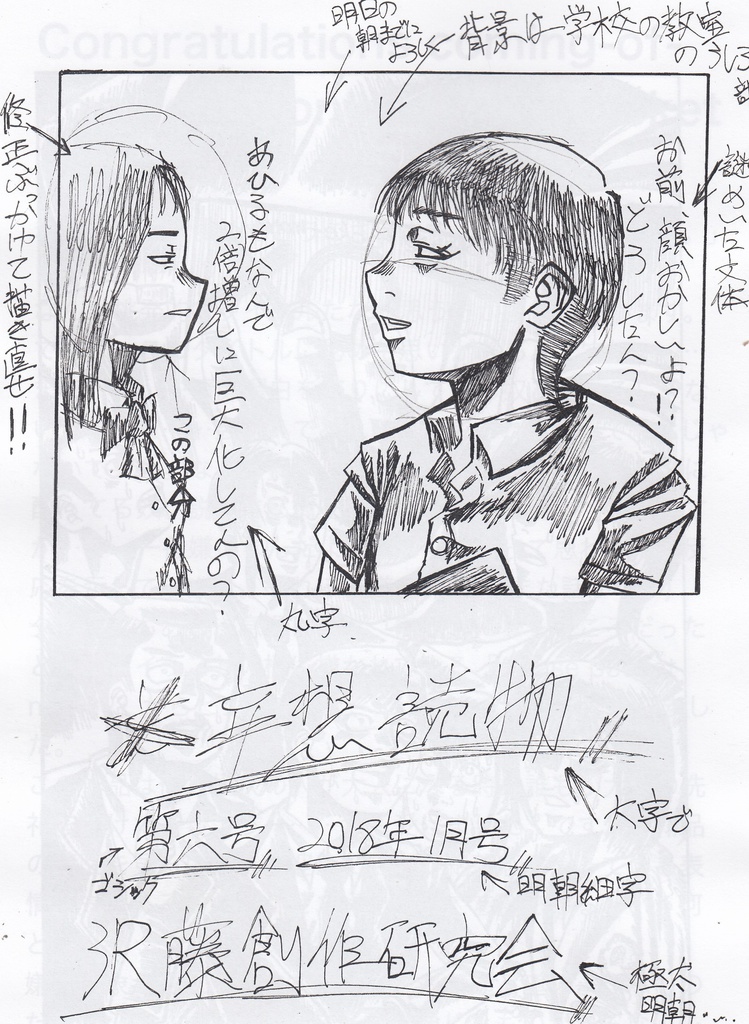 明日の
朝までに
よろしく
背景は学校の教室
のうしろ
部
謎めいた文体
お前、顔おかしいよ？
どうしたん？!!
修正ぶっかけて描き直せ!!
あひるもなんで
2倍増しに巨大化してんの？
この部分
丸字
妄想読物
太字で
第六号 2018年1月号
ゴシック
明朝細字
沢藤創作研究会
極太
明朝……